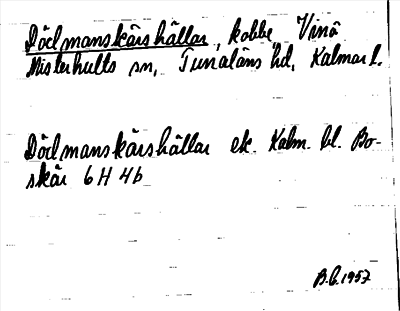 Dödmanskärshällar, kobbe Vinö
Misterhults sn, Tunaläns hd, Kalmar l.
Dödmanskärshällar ek. Kalm. bl. Bo-
skär 6 H 4b
B.C. 1957